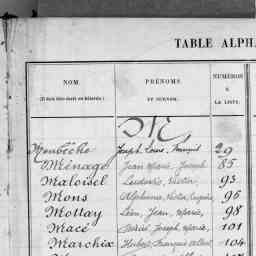 TABLE ALPHA
NOM.
PRÉNOMS
ET SURNOM.
NUMÉROS
À
LA LISTE.
M
Monbèche Joseph, Louis, François 29
Ménage Jean Marie, Joseph 85
Maloisel Ludovic, Victor, 93
Mons Alphonse, Victor, Eugène 96
Mottay Léon, Jean, Marie, 98
Macé Joseph, Marie, 101
Marchix Herbert, François Albert 104